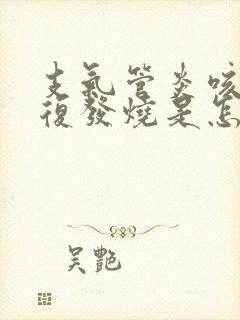 支氣管炎咳
復發燒是怎
吴艷